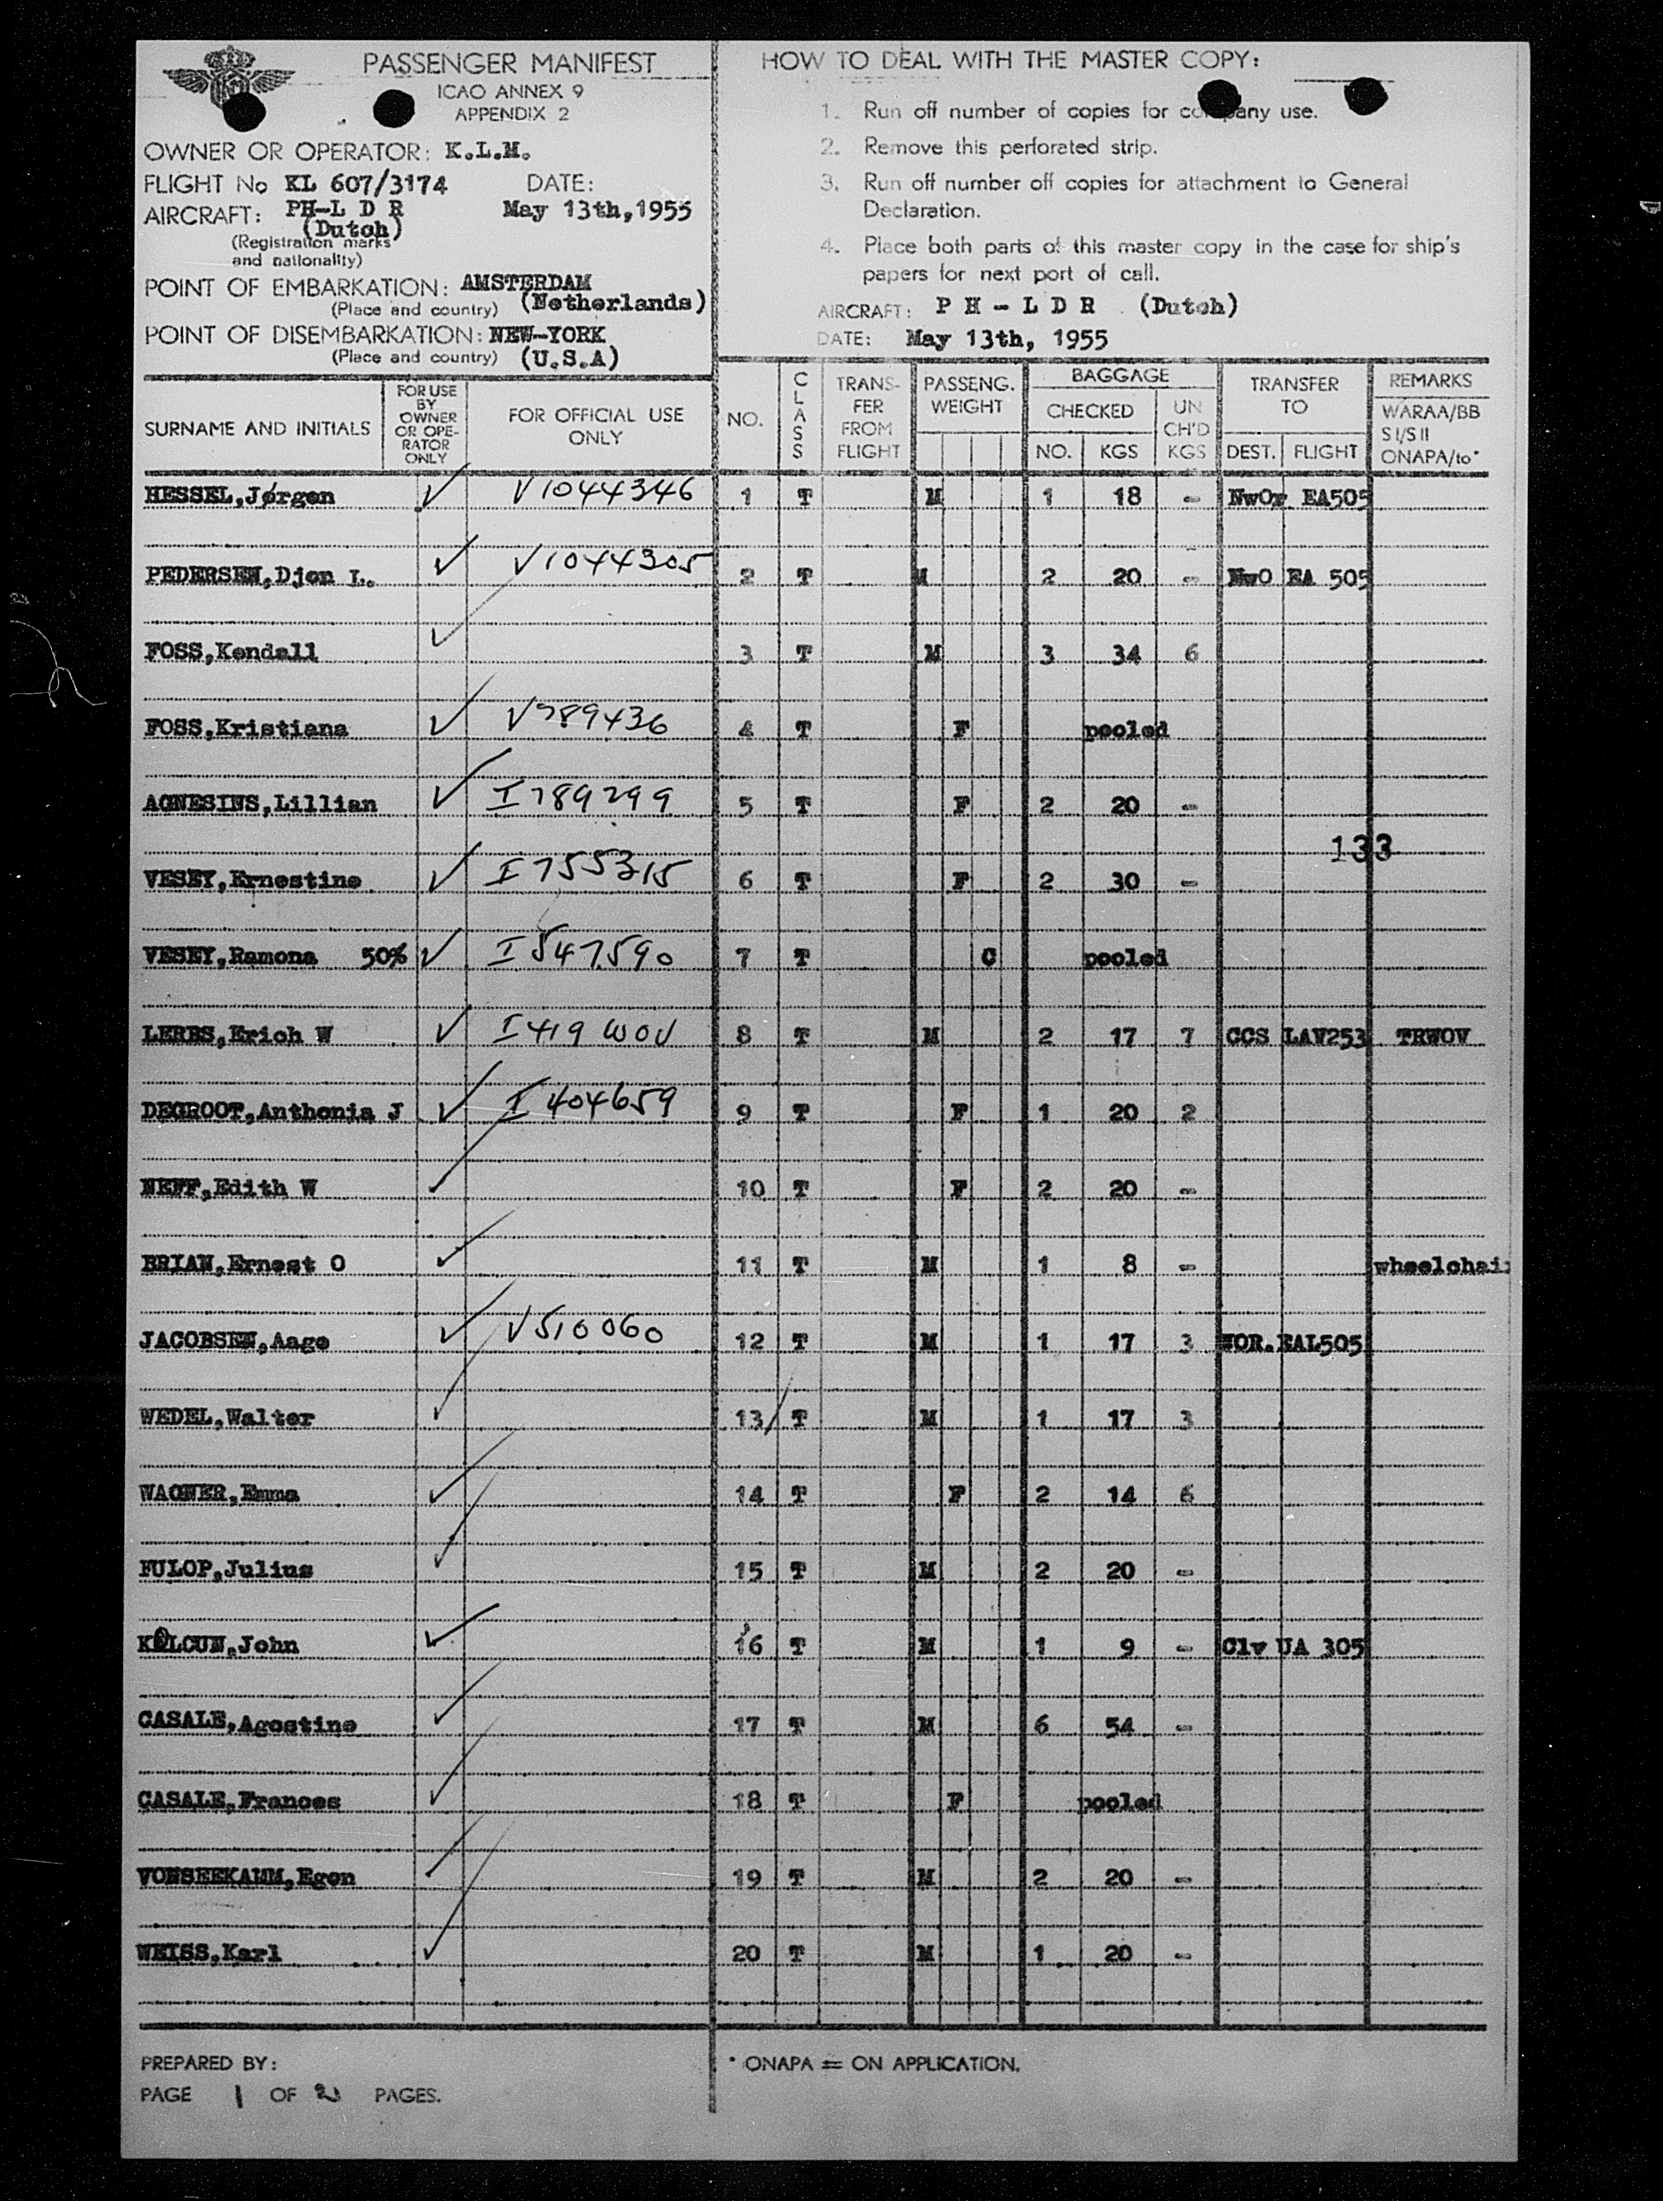 PASSENGER MANIFEST
ICAO ANNEX 9
APPENDIX 2
OWNER OR OPERATOR: K.L.M.
FLIGHT No KL 607/3174 DATE:
AIRCRAFT: PH-L D R May 13th,1955
(Dutch)
(Registration marks
and nationality)
POINT OF EMBARKATION: AMSTERDAM
(Place and country) (Netherlands)
POINT OF DISEMBARKATION: NEW-YORK
(Place and country) (U.S.A)
HOW TO DEAL WITH THE MASTER COPY:
1. Run off number of copies for company use.
2. Remove this perforated strip.
3. Run off number off copies for attachment to General
Declaration.
4. Place both parts of this master copy in the case for ship's
papers for next port of call.
AIRCRAFT: P H - L D R (Dutch)
DATE: May 13th, 1955
SURNAME AND INITIALS FOR USE BY OWNER OR OPE- RATOR ONLY FOR OFFICIAL USE ONLY NO. CLASS TRANS- FER FROM FLIGHT PASSENG. WEIGHT BAGGAGE CHECKED NO. KGS UN CH'D KGS TRANSFER TO DEST. FLIGHT REMARKS WARAA/BB S I/S II ONAPA/to*
HESSEL,Jørgen ✓ V1044346 1 T M 1 18 - NwOr EA505
PEDERSEN,Djon L. ✓ V1044305 2 T M 2 20 - NwO EA 505
FOSS,Kendall ✓ 3 T M 3 34 6
FOSS,Kristiana ✓ V789436 4 T F pooled
AGNESINS,Lillian ✓ I789299 5 T F 2 20 -
133
VESEY,Ernestine ✓ I755315 6 T F 2 30 -
VESEY,Ramona 50% ✓ I547590 7 T C pooled
LERBS,Erich W ✓ I419 WOV 8 T M 2 17 7 CCS LAV253 TRWOV
DEGROOT,Anthonia J ✓ I404659 9 T F 1 20 2
NEFF,Edith W ✓ 10 T F 2 20 -
BRIAN,Ernest O ✓ 11 T M 1 8 - wheelchair
JACOBSEN,Aage ✓ V510060 12 T M 1 17 3 NOR.EAL505
WEDEL,Walter ✓ 13/ T M 1 17 3
WAGNER,Emma ✓ 14 T F 2 14 6
FULOP,Julius ✓ 15 T M 2 20 -
KOLCUN,John ✓ 16 T M 1 9 - Clv UA 305
CASALE,Agostino ✓ 17 T M 6 54 -
CASALE,Frances ✓ 18 T F pooled
VONSEEKAMM,Egon ✓ 19 T M 2 20 -
WEISS,Karl ✓ 20 T M 1 20 -
PREPARED BY: * ONAPA = ON APPLICATION.
PAGE 1 OF 2 PAGES.